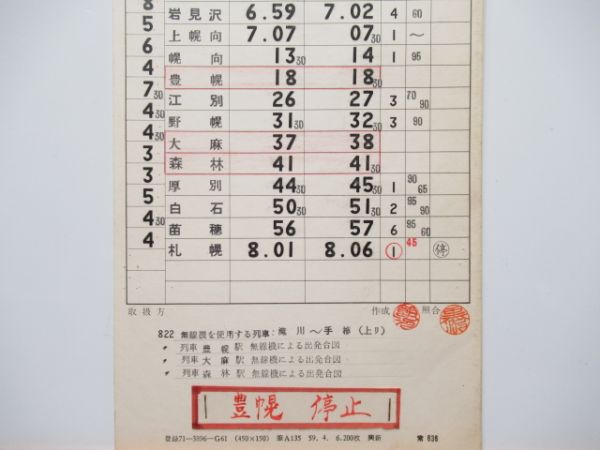 8 岩見沢 6.59 7.02 4 60
5 上幌向 7.07 07 30 1 〜
6 幌向 13 30 14 1 95
4 豊幌 18 18 30
7 30 江別 26 27 3 70 90
4 30 野幌 31 30 32 30 3 90
4 30 大麻 37 38
3 森林 41 41 30
3 厚別 44 30 45 30 1 90 65
5 白石 50 30 51 30 2 95 90
4 30 苗穂 56 57 6 95 60
4 札幌 8.01 8.06 1 45 停
取扱方 作成 照合
822 無線機を使用する列車: 滝川〜手稲(上り)
〃 列車 豊幌駅 無線機による出発合図
〃 列車 大麻駅 無線機による出発合図
〃 列車 森林駅 無線機による出発合図
豊幌 停止
登録71-3896-G61 (450×150) 薬A135 59. 4. 6.200枚 興新 常 636